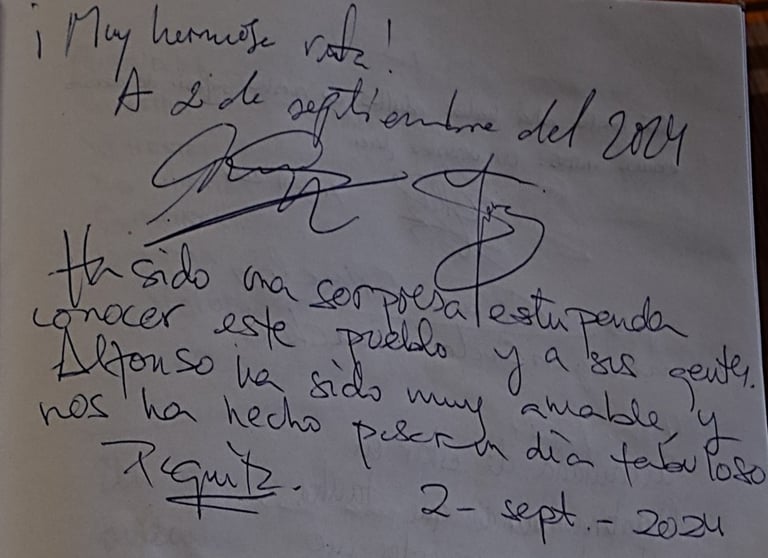 ¡Muy hermosa ruta!
A 2 de septiembre del 2024
Ha sido una sorpresa estupenda
conocer este pueblo y a sus gentes.
Alfonso ha sido muy amable, y
nos ha hecho pasar un día fabuloso
2 - sept. - 2024